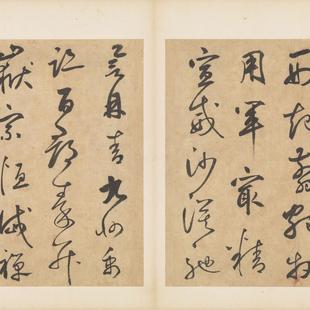 刑起翦頗牧
用軍最精
宣威沙漠馳
譽丹青九州禹
跡百郡秦并
嶽宗恒岱禪